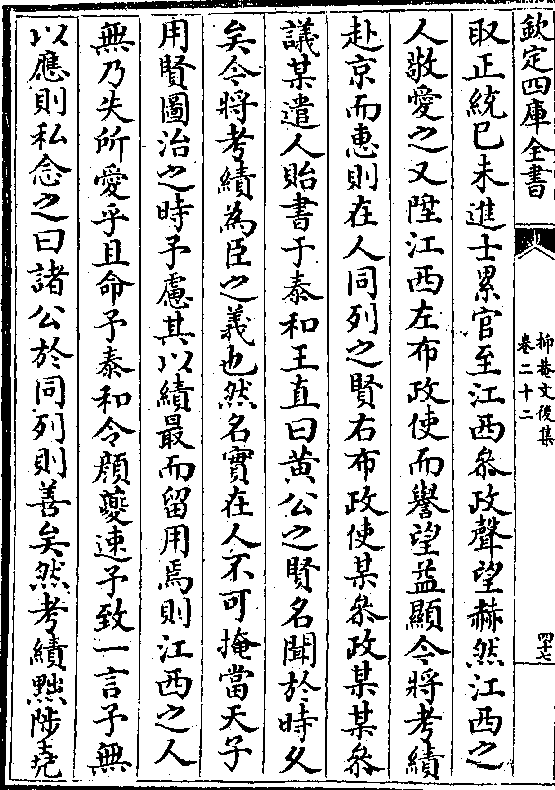 欽定四庫全書
抑菴文後集
卷二十二
取正統己未進士累官至江西叅政聲望赫然江西之
人敬愛之又陞江西左布政使而譽望益顯今將考績
赴京而惠則在人同列之賢右布政使某叅政某某叅
議某遣人貽書于泰和王直曰黄公之賢名聞於時久
矣今將考績為臣之義也然名實在人不可掩當天子
用賢圖治之時予慮其以績最而留用焉則江西之人
無乃失所愛乎且命予泰和令顔夔速予致一言予無
以應則私念之曰諸公於同列則善矣然考績黜陟堯